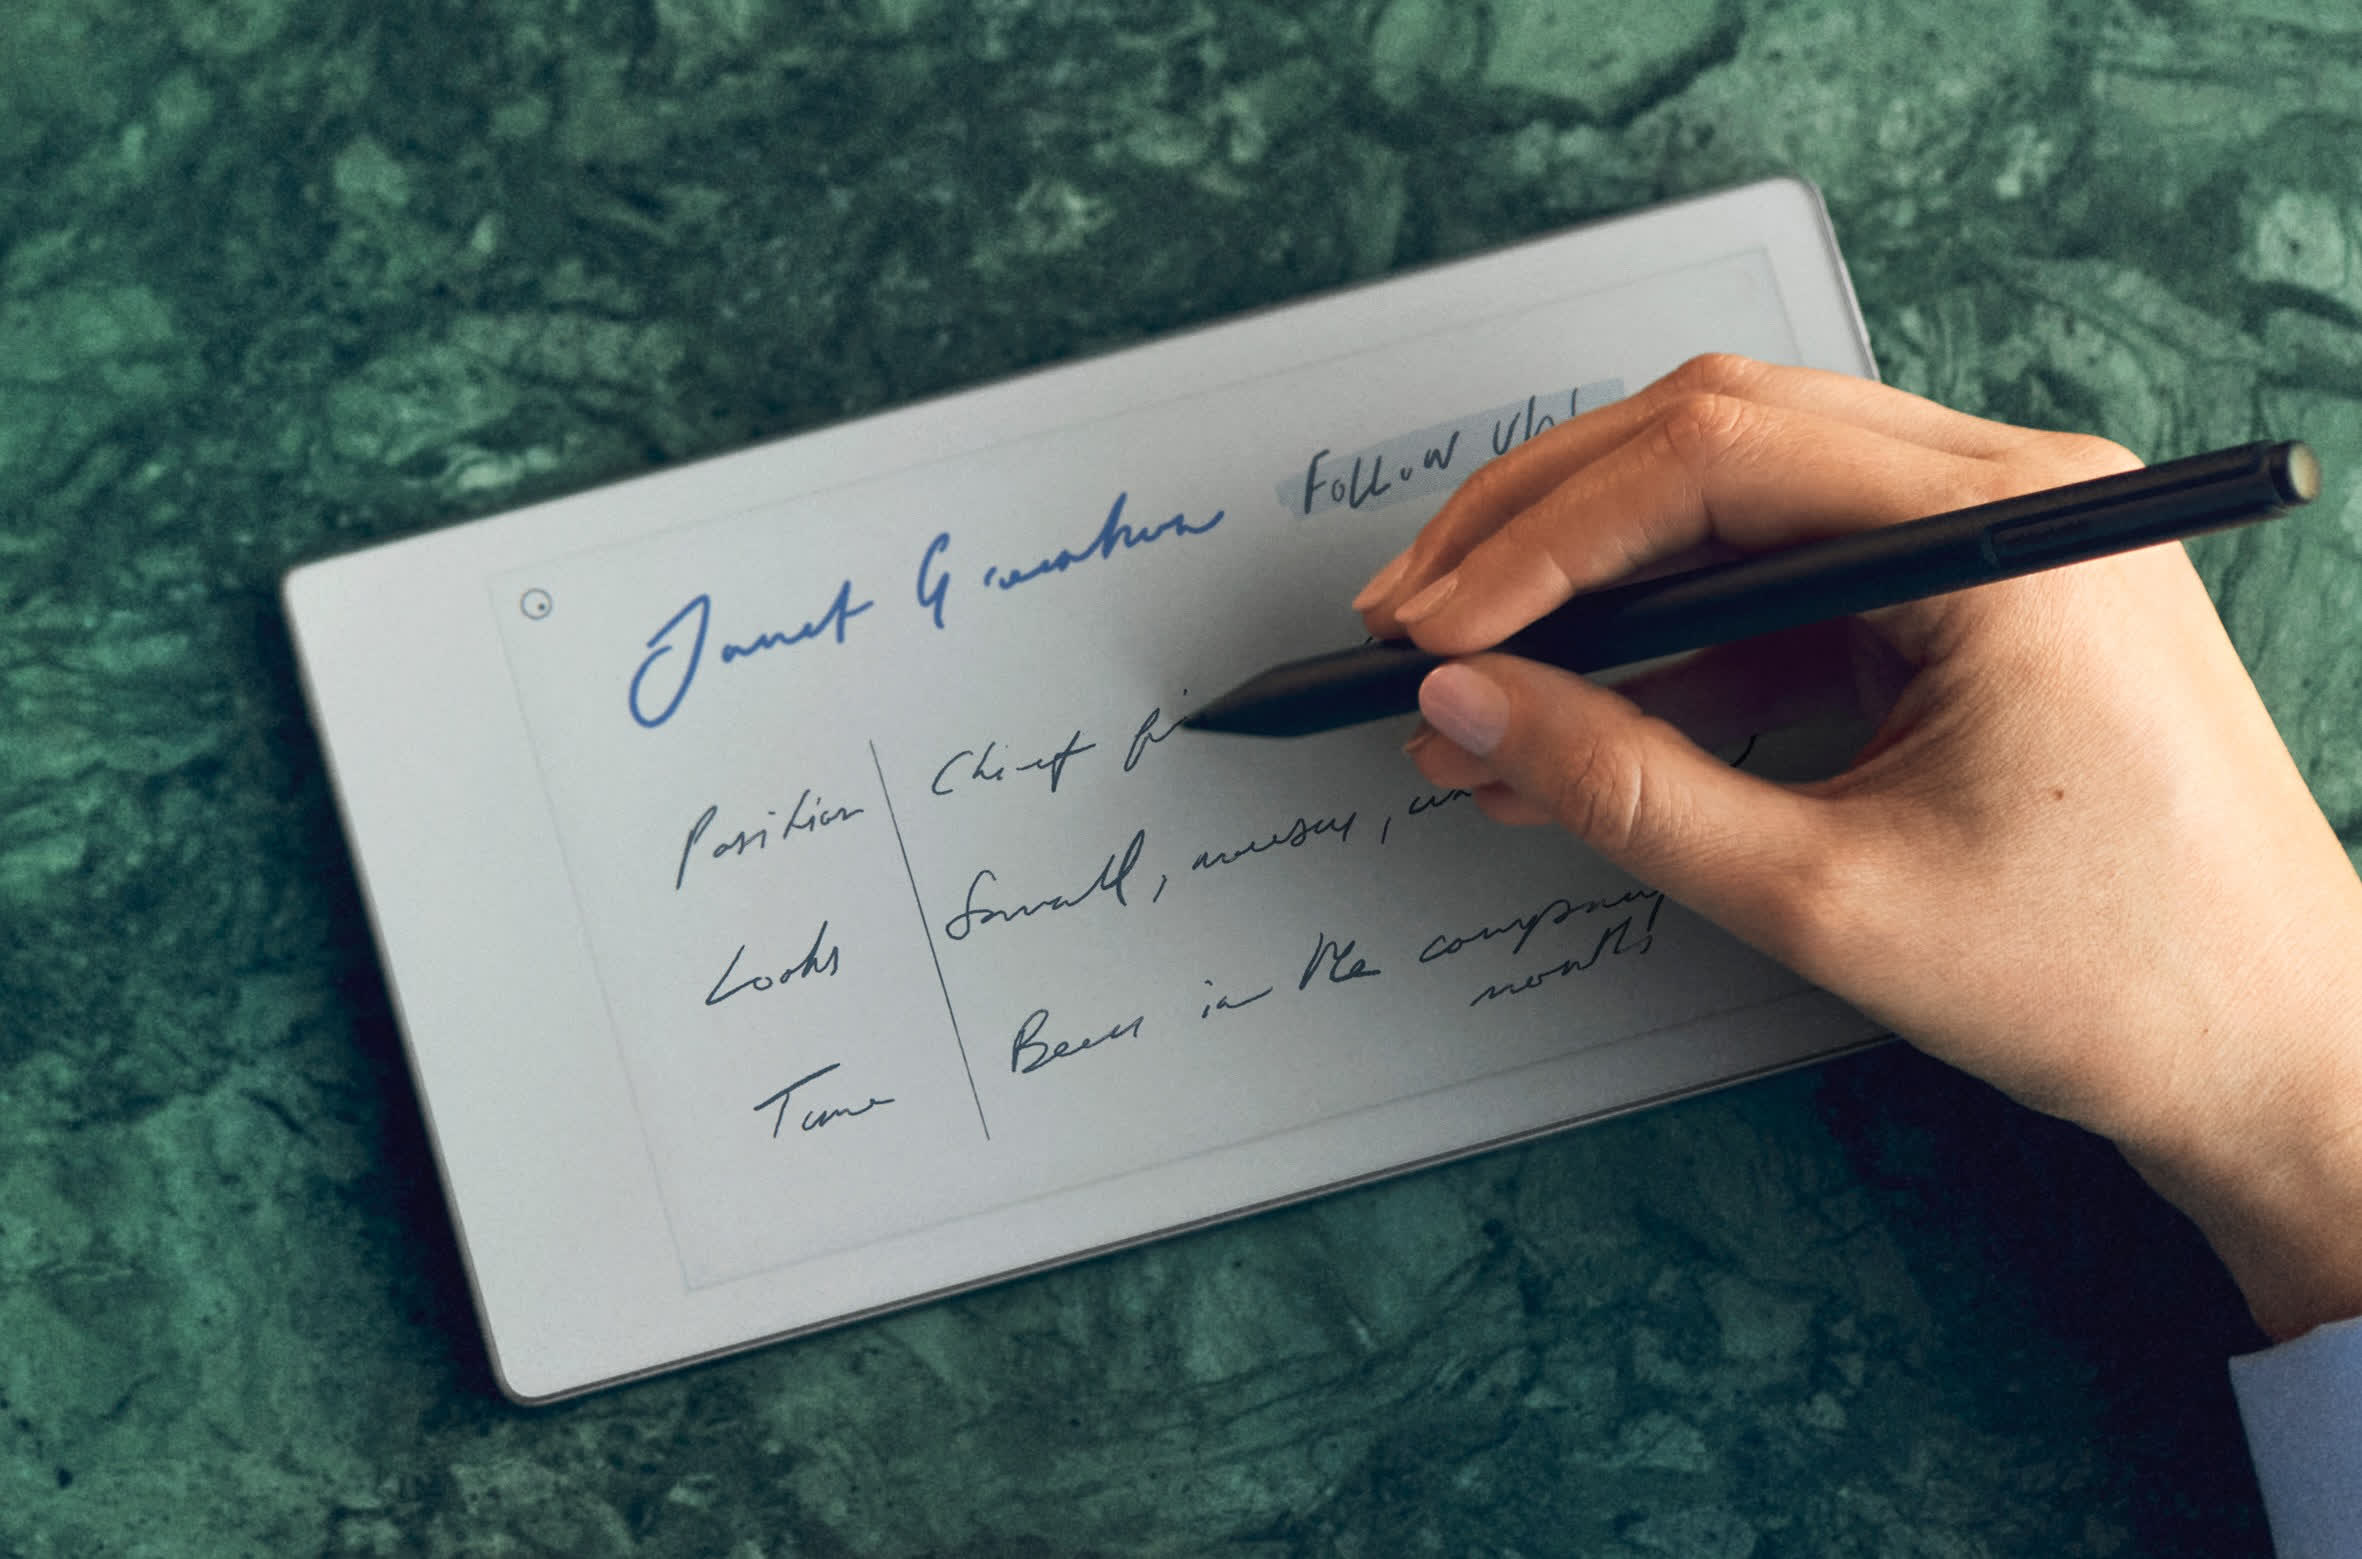 Janet Follow Up!
Position Chief
Looks Small, mousy,
Time Been in the company
months